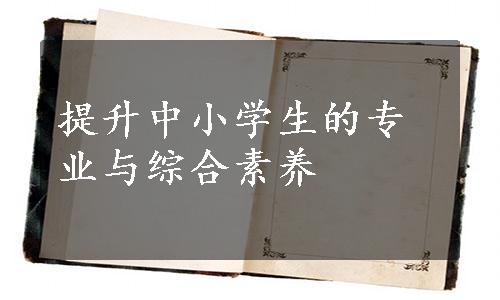 提升中小学生的专
业与综合素养